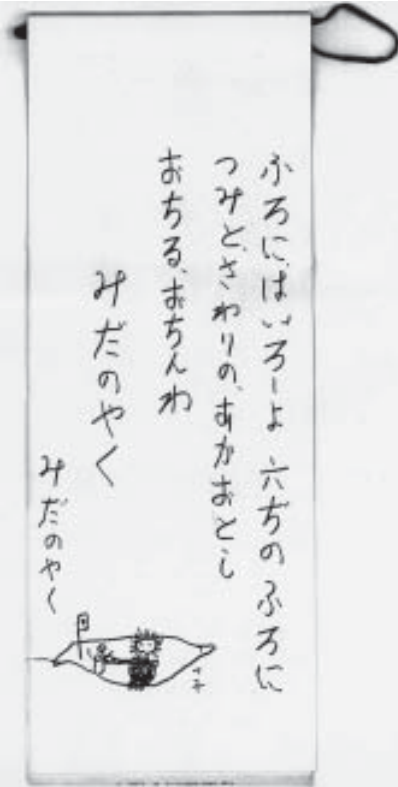 ふろにはいろーよ 六ぢのふろに
つみと、さわりの、あかおとし
おちる、おちんわ
みだのやく
みだのやく